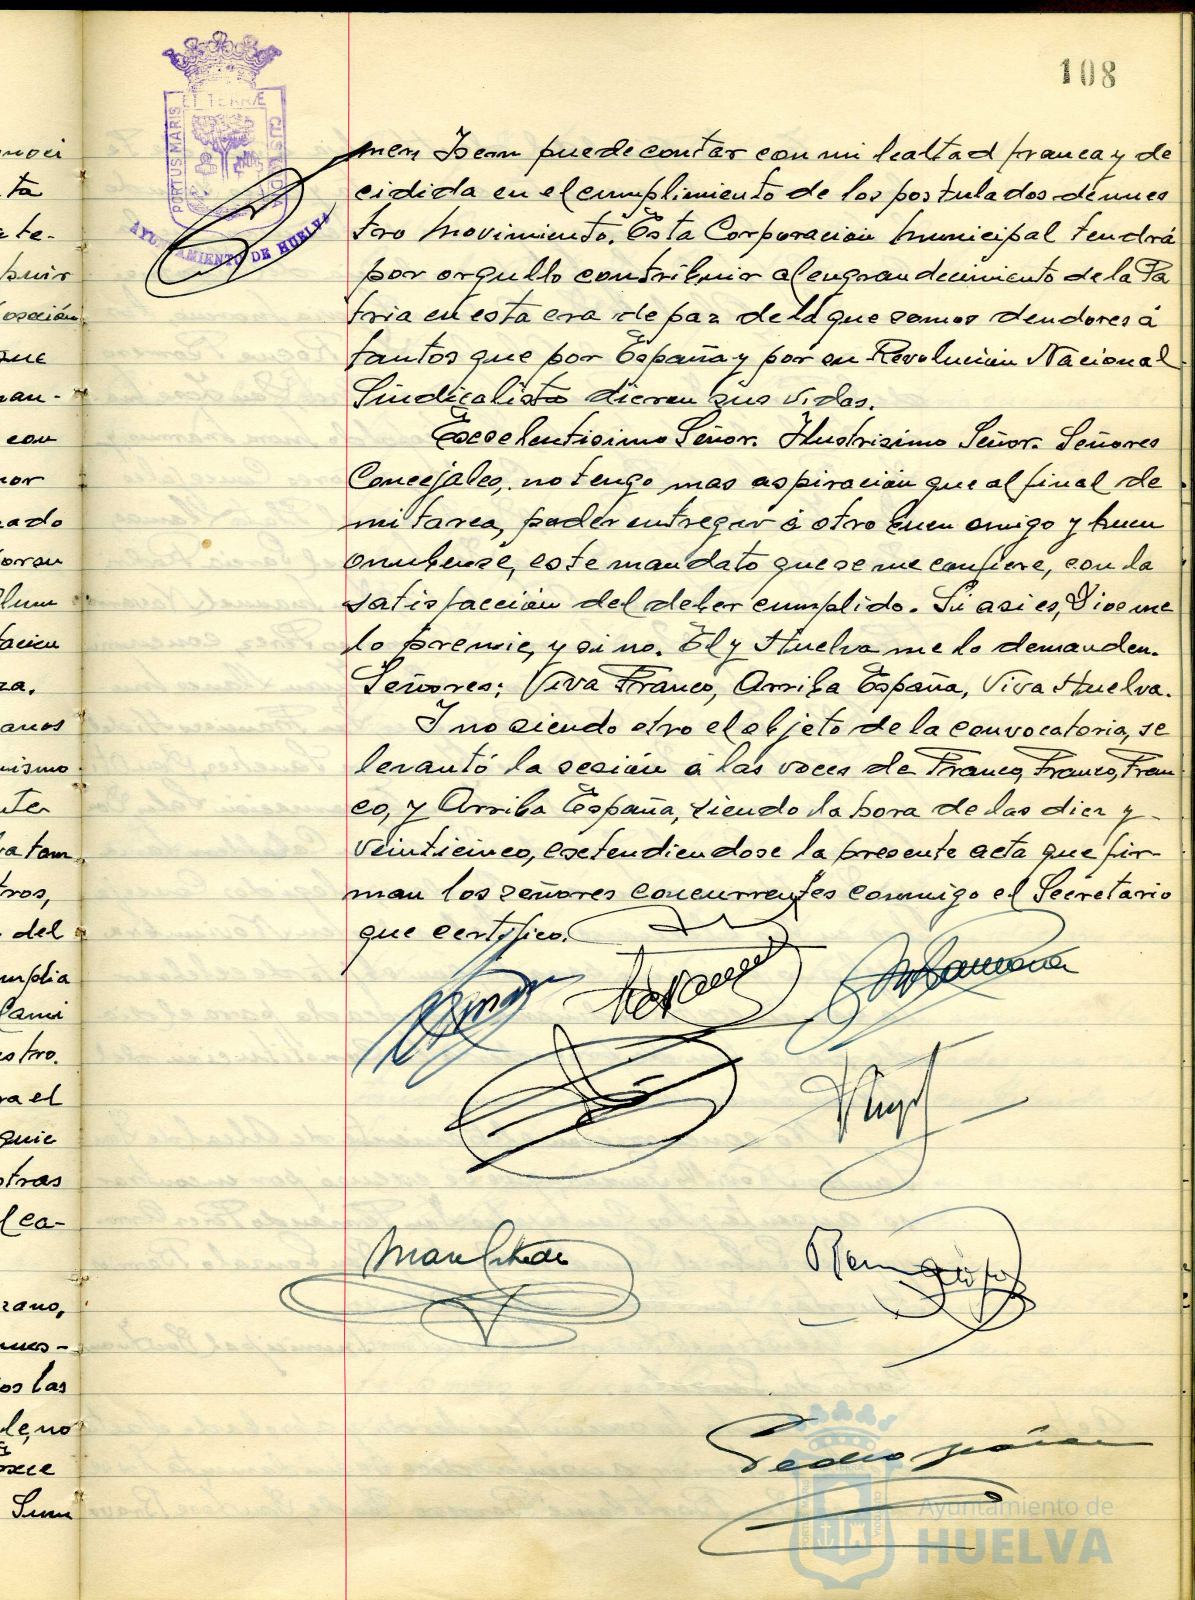 108
PORTUS MARIS
ET TERRÆ
CUSTODIA
AYUNTAMIENTO DE HUELVA
men Isern puede contar con mi lealtad franca y de
cidida en el cumplimiento de los postulados de nues
tro Movimiento. Esta Corporación Municipal tendrá
por orgullo contribuir al engrandecimiento de la Pa
tria en esta era de paz de la que somos deudores á
tantos que por España y por su Revolución Nacional
Sindicalista dieron sus vidas.
Excelentisimo Señor. Ilustrisimo Señor. Señores
Concejales, no tengo mas aspiración que al final de
mi tarea, poder entregar á otro buen amigo y buen
onubense, este mandato que se me confiere, con la
satisfacción del deber cumplido. Si asi es, Dios me
lo premie, y si no. El y Huelva me lo demanden.
Señores: Viva Franco, Arriba España, Viva Huelva.
Y no siendo otro el objeto de la convocatoria, se
levantó la sesión á las voces de Franco, Franco, Fran
co, y Arriba España, siendo la hora de las diez y
veinticinco, extendiendose la presente acta que fir-
man los señores concurrentes conmigo el Secretario
que certifico.
Pedro
Ayuntamiento de
HUELVA
ta
que
con
del
ra el
otras
l ca-
zano,
os las